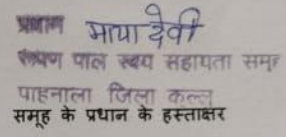 प्रधान माया देवी
पाल स्वयं सहायता समूह
पाहनाला जिला कुल्लू
समूह के प्रधान के हस्ताक्षर